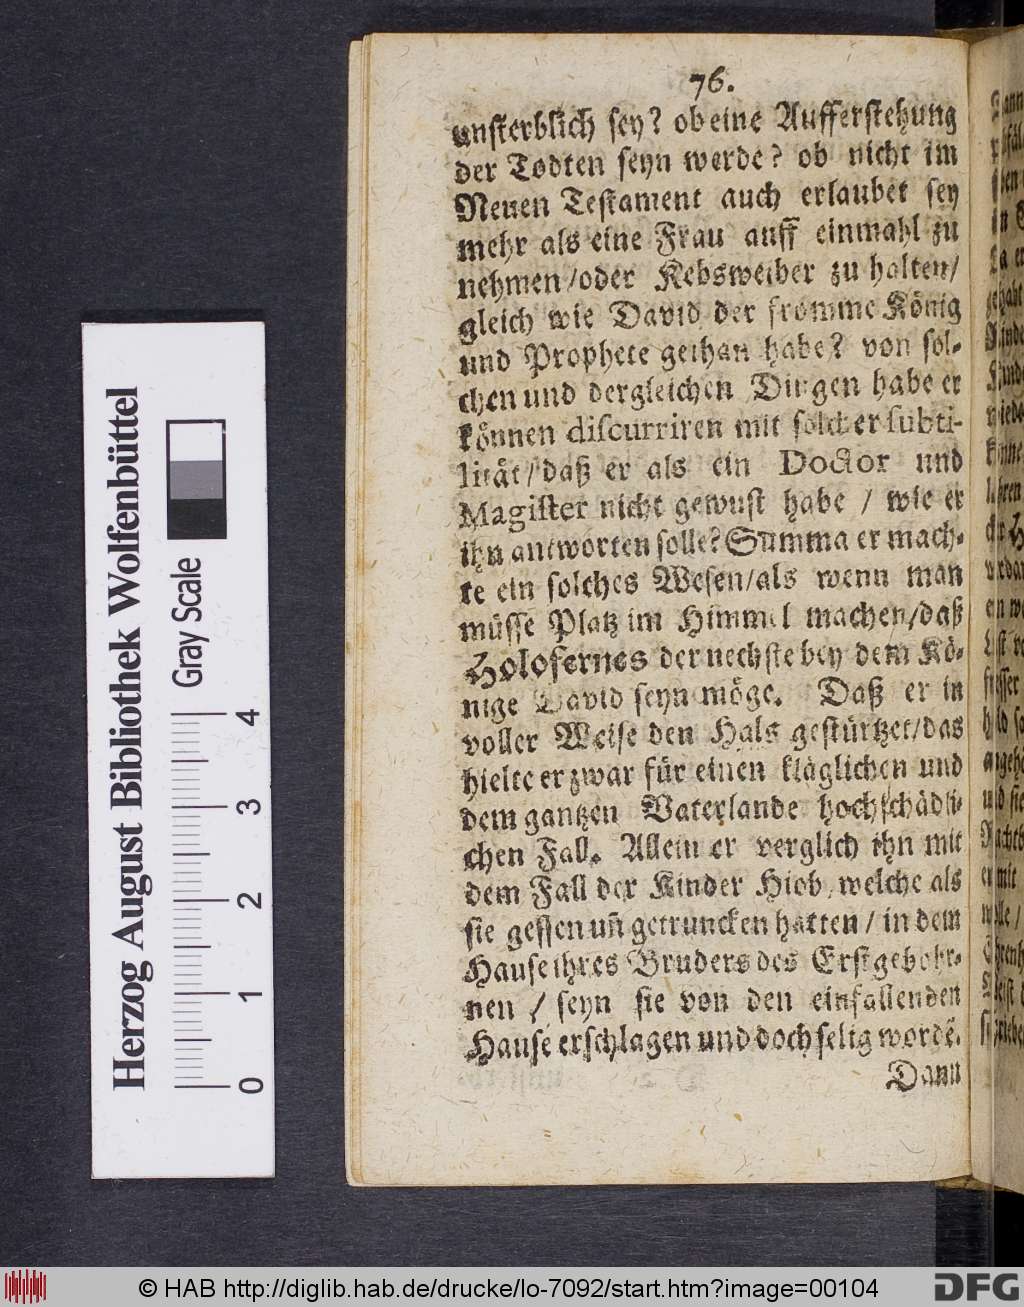 76.
unsterblich sey? ob eine Aufferstehung
der Todten seyn werde? ob nicht im
Neuen Testament auch erlaubet sey
mehr als eine Frau auff einmahl zu
nehmen/oder Kebsweiber zu halten/
gleich wie David der fromme König
und Prophete gethan habe? von sol-
chen und dergleichen Dingen habe er
können discurriren mit solcher subti-
lität/daß er als ein Doctor und
Magister nicht gewust habe / wie er
ihn antworten solle? Summa er mach-
te ein solches Wesen/als wenn man
müsse Platz im Himmel machen/daß
Holofernes der nechste bey dem Kö-
nige David seyn möge. Daß er in
voller Weise den Hals gestürtzet/das
hielte er zwar für einen kläglichen und
dem gantzen Vaterlande hochschädli-
chen Fall. Allein er verglich ihn mit
dem Fall der Kinder Hiob, welche als
sie gessen uñ getruncken hatten / in dem
Hause ihres Bruders des Erstgebohr-
nen / seyn sie von den einfallenden
Hause erschlagen und doch selig wordẽ.
Dann
Herzog August Bibliothek Wolfenbüttel
Gray Scale
0 1 2 3 4
© HAB http://diglib.hab.de/drucke/lo-7092/start.htm?image=00104
DFG